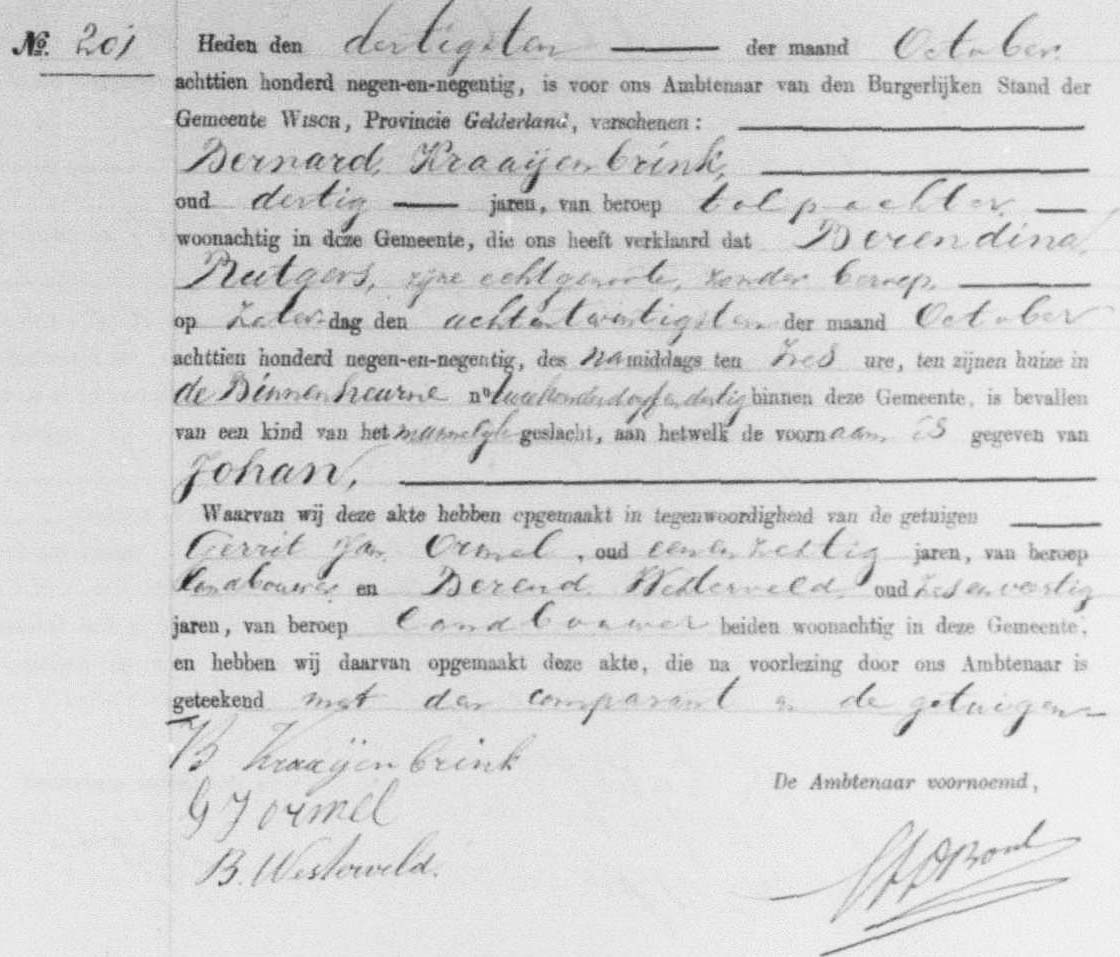 No. 201 Heden den dertigsten der maand October
achttien honderd negen-en-negentig, is voor ons Ambtenaar van den Burgerlijken Stand der
Gemeente Wisch, Provincie Gelderland, verschenen:
Bernard Kraaijenbrink,
oud dertig jaren, van beroep tolpachter,
woonachtig in deze Gemeente, die ons heeft verklaard dat Berendina
Rutgers, zijne echtgenoote, zonder beroep,
op Zaterdag den achtentwintigsten der maand October
achttien honderd negen-en-negentig, des namiddags ten zes ure, ten zijnen huize in
de Binnenheurne no binnen deze Gemeente, is bevallen
van een kind van het mannelijk geslacht, aan hetwelk de voornaam is gegeven van
Johan,
Waarvan wij deze akte hebben opgemaakt in tegenwoordigheid van de getuigen
Gerrit Jan Ormel, oud eenenzestig jaren, van beroep
landbouwer en Berend Westerveld oud zesenveertig
jaren, van beroep landbouwer beiden woonachtig in deze Gemeente,
en hebben wij daarvan opgemaakt deze akte, die na voorlezing door ons Ambtenaar is
geteekend met den comparant en de getuigen
B Kraaijenbrink
De Ambtenaar voornoemd,
G J Ormel
B. Westerveld.